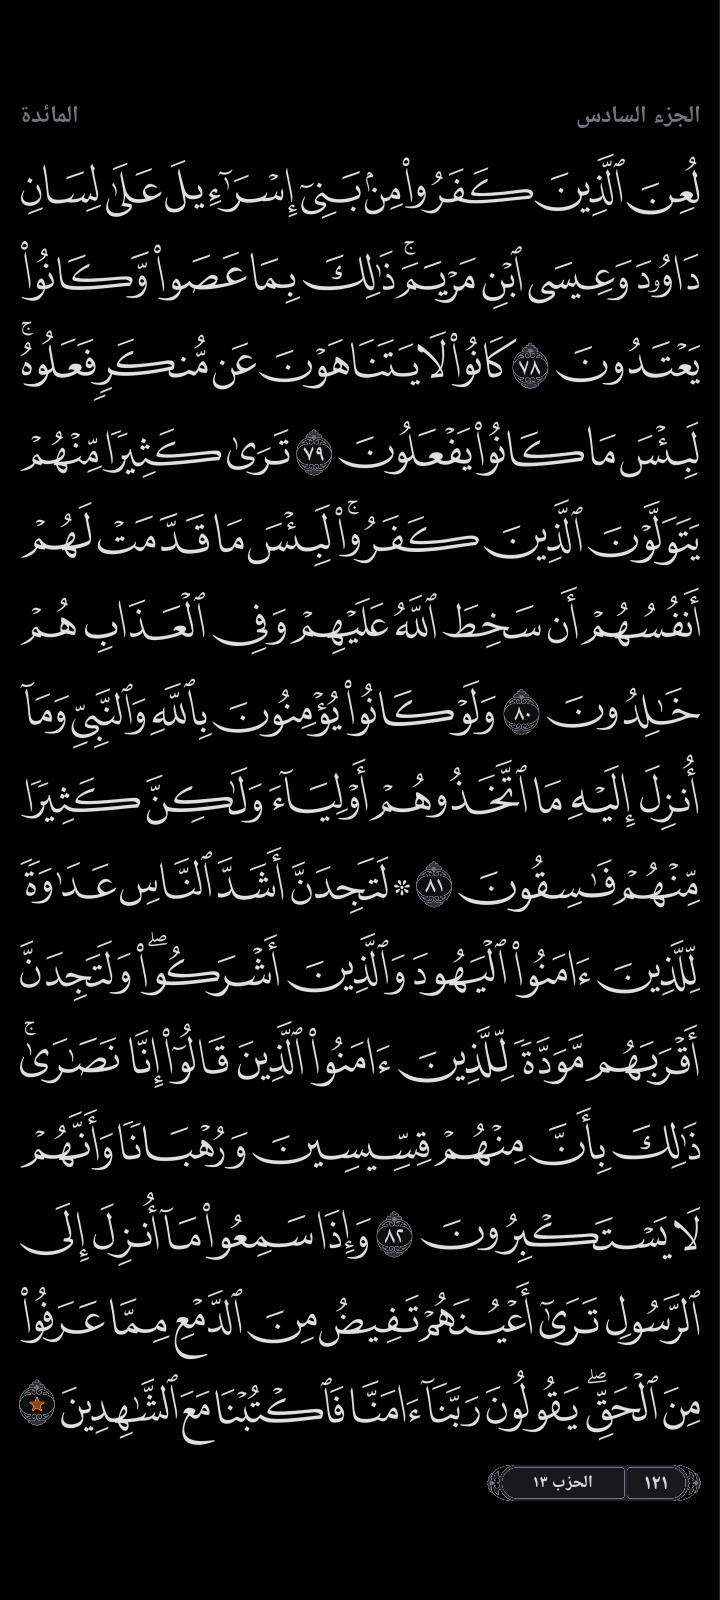 الجزء السادس
المائدة
لُعِنَ ٱلَّذِينَ كَفَرُوا۟ مِنۢ بَنِىٓ إِسْرَٰٓءِيلَ عَلَىٰ لِسَانِ
دَاوُۥدَ وَعِيسَى ٱبْنِ مَرْيَمَ ۚ ذَٰلِكَ بِمَا عَصَوا۟ وَّكَانُوا۟
يَعْتَدُونَ ٧٨ كَانُوا۟ لَا يَتَنَاهَوْنَ عَن مُّنكَرٍ فَعَلُوهُ ۚ
لَبِئْسَ مَا كَانُوا۟ يَفْعَلُونَ ٧٩ تَرَىٰ كَثِيرًا مِّنْهُمْ
يَتَوَلَّوْنَ ٱلَّذِينَ كَفَرُوا۟ ۚ لَبِئْسَ مَا قَدَّمَتْ لَهُمْ
أَنفُسُهُمْ أَن سَخِطَ ٱللَّهُ عَلَيْهِمْ وَفِى ٱلْعَذَابِ هُمْ
خَـٰلِدُونَ ٨٠ وَلَوْ كَانُوا۟ يُؤْمِنُونَ بِٱللَّهِ وَٱلنَّبِىِّ وَمَآ
أُنزِلَ إِلَيْهِ مَا ٱتَّخَذُوهُمْ أَوْلِيَآءَ وَلَـٰكِنَّ كَثِيرًا
مِّنْهُمْ فَـٰسِقُونَ ٨١ ۞ لَتَجِدَنَّ أَشَدَّ ٱلنَّاسِ عَدَٰوَةً
لِّلَّذِينَ ءَامَنُوا۟ ٱلْيَهُودَ وَٱلَّذِينَ أَشْرَكُوا۟ ۖ وَلَتَجِدَنَّ
أَقْرَبَهُم مَّوَدَّةً لِّلَّذِينَ ءَامَنُوا۟ ٱلَّذِينَ قَالُوٓا۟ إِنَّا نَصَـٰرَىٰ ۚ
ذَٰلِكَ بِأَنَّ مِنْهُمْ قِسِّيسِينَ وَرُهْبَانًا وَأَنَّهُمْ
لَا يَسْتَكْبِرُونَ ٨٢ وَإِذَا سَمِعُوا۟ مَآ أُنزِلَ إِلَى
ٱلرَّسُولِ تَرَىٰٓ أَعْيُنَهُمْ تَفِيضُ مِنَ ٱلدَّمْعِ مِمَّا عَرَفُوا۟
مِنَ ٱلْحَقِّ ۖ يَقُولُونَ رَبَّنَآ ءَامَنَّا فَٱكْتُبْنَا مَعَ ٱلشَّـٰهِدِينَ
١٢١ الحزب ١٣